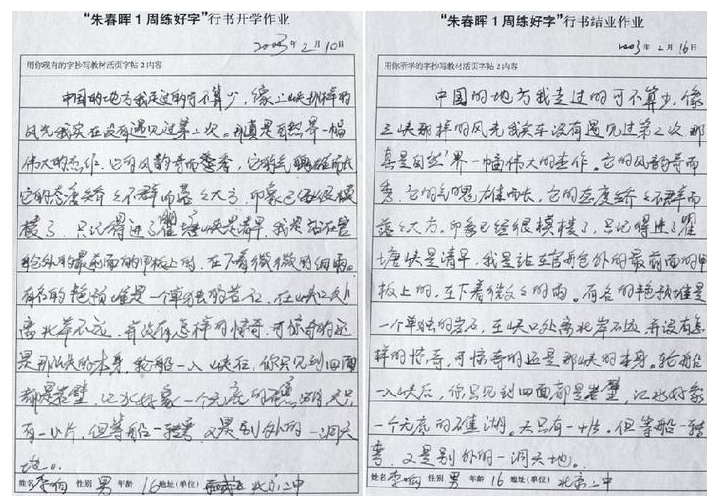 “朱春晖1周练好字”行书开学作业
2003年2月10日
用你现有的字抄写教材活页字帖2内容
中国的地方我走过的可不算少，像三峡那样的
风光我实在没有遇见过第二次。那真是自然界一幅
伟大的杰作。它的风韵奇而秀，它的气魄雄而长
它的态度矫矫不群而落落大方。印象已经很模
模了，只记得进了瞿塘峡是清早，我是站在官
舱外的最前面的甲板上的，在下着微微的细雨。
有名的艳预堆是一个单独的岩石，在峡口处
离北岸不远，并没有怎样的惊奇，可惊奇的还
是那峡的本身，轮船一入峡后，你只见到四面
都是岩壁，江水好象一个无底的礁湖，天只
有一小片，但等船一转弯，又是别外的一洞天
地。
姓名 李响 性别 男 年龄 16 地址(单位) 北京二中
“朱春晖1周练好字”行书结业作业
2003年2月16日
用你所学的字抄写教材活页字帖2内容
中国的地方我走过的可不算少，像
三峡那样的风光我实在没有遇见过第二次 那
真是自然界一幅伟大的杰作。它的风韵奇而
秀，它的气魄雄而长，它的态度矫矫不群而
落落大方。印象已经很模楼了，只记得进了瞿
塘峡是清早，我是站在官舱外的最前面的甲
板上的，在下着微微的雨。有名的艳预堆是
一个单独的岩石，在峡口处离北岸不远，并没有怎
样的惊奇，可惊奇的还是那峡的本身。轮船
一入峡后，你只见到四面都是岩壁，江水好象
一个无底的礁湖。天只有一小片。但等船一转
弯，又是别外的一洞天地。
姓名 李响 性别 男 年龄 16 地址(单位) 北京二中